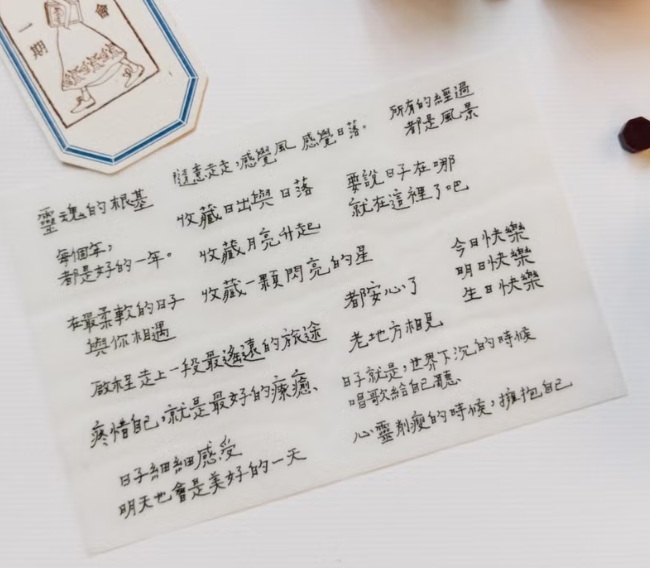 一期
會
隨意走走，感覺風 感覺日落。
所有的經過
都是風景
靈魂的根基
收藏日出與日落
要說日子在哪
就在這裡了吧
每個年，
都是好的一年。
收藏月亮升起
在最柔軟的日子
與你相遇
收藏一顆閃亮的星
都安心了
今日快樂
明日快樂
生日快樂
啟程走上一段最遙遠的旅途
老地方相見
疼惜自己，就是最好的療癒、
日子就是，世界下沉的時候
唱歌給自己聽、
日子細細感受
明天也會是美好的一天
心靈削瘦的時候，擁抱自己